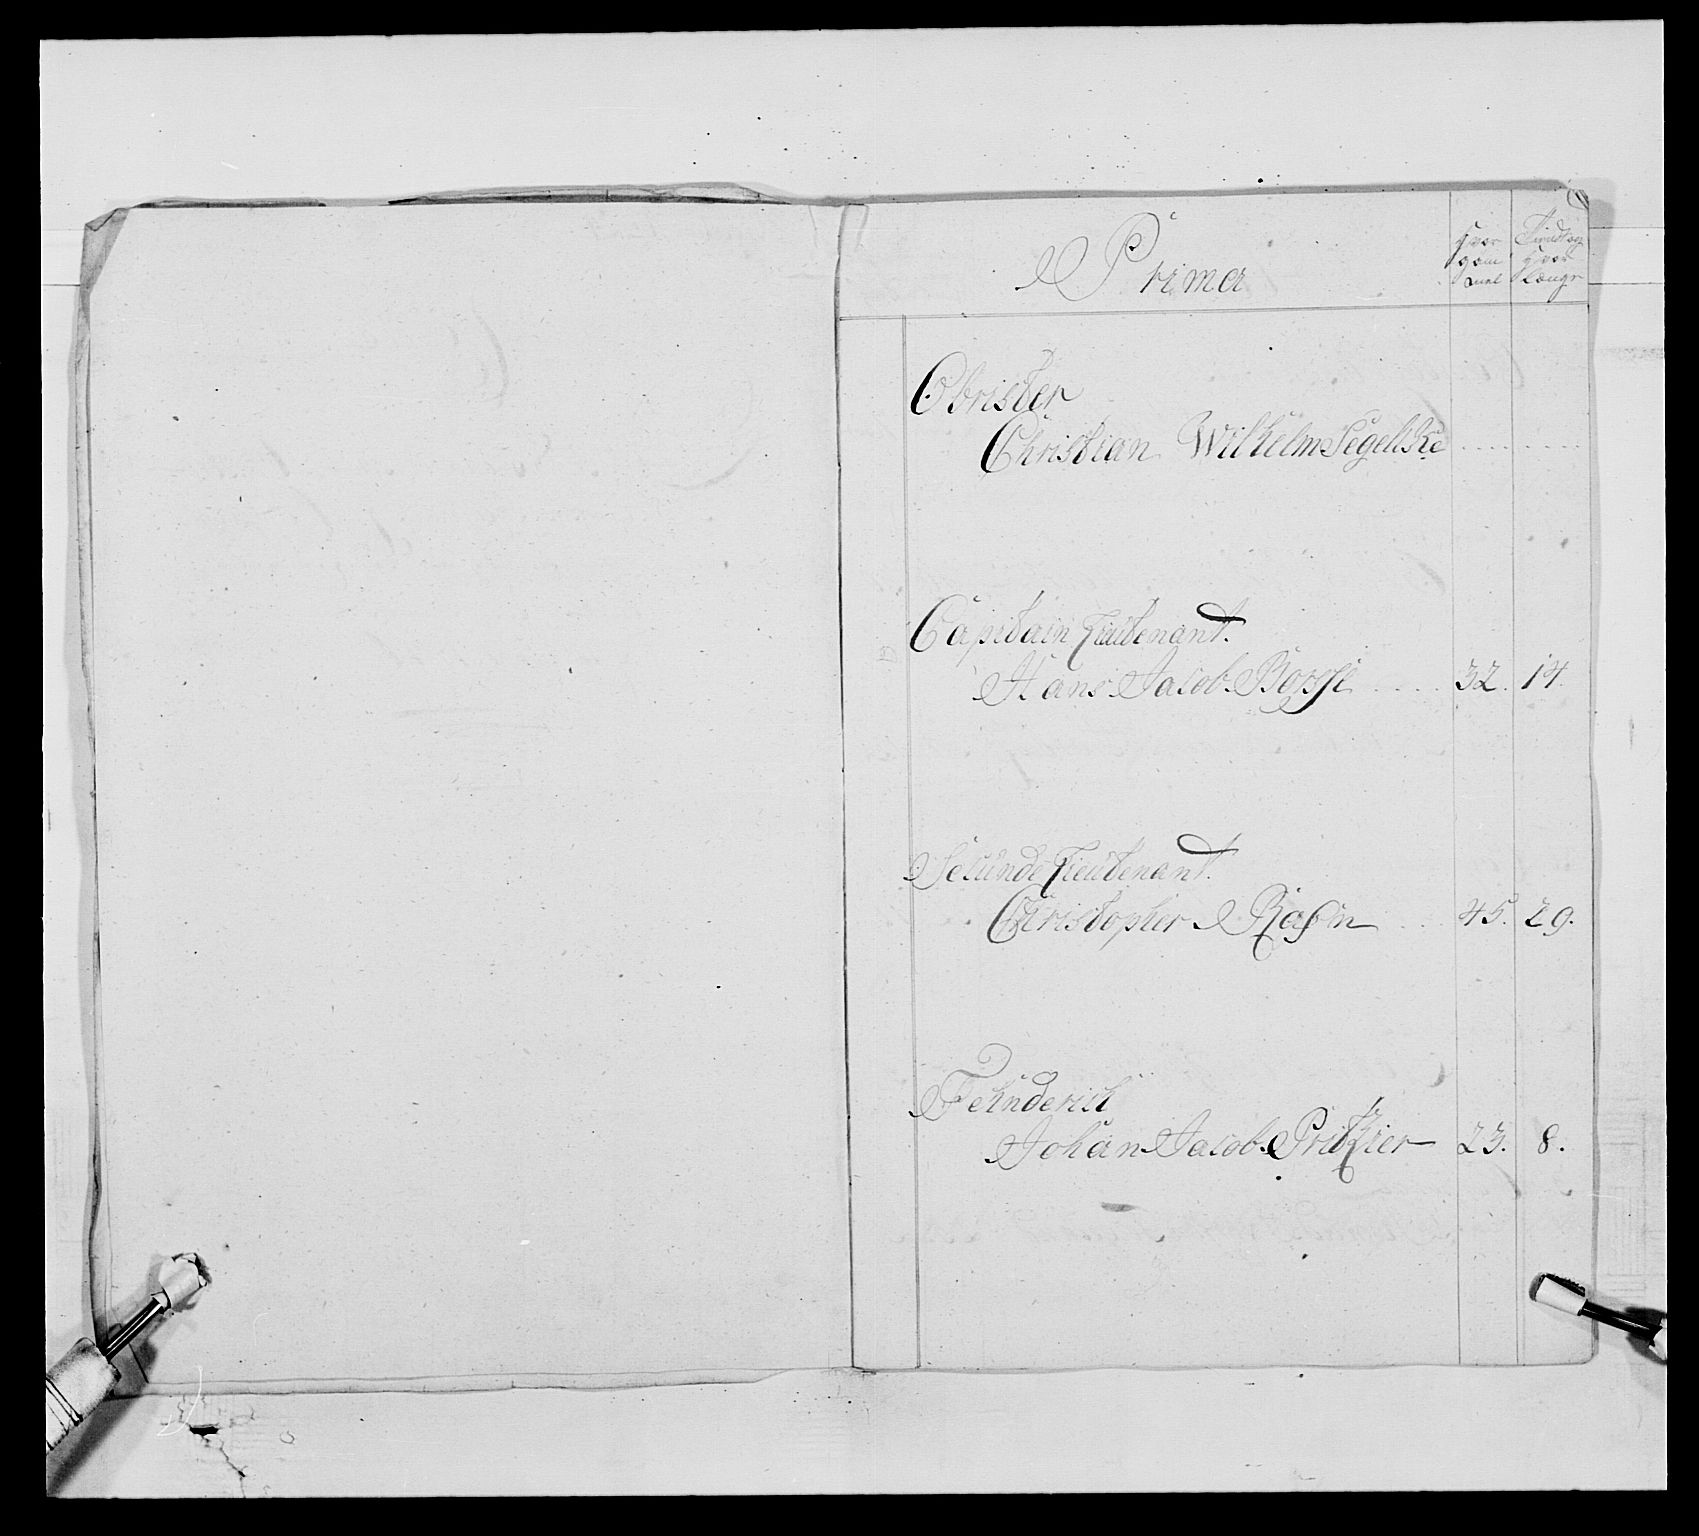 Prima
Hvor gam mel
Hvor Længe
Obrister
Christian Wilhelm Segelke
Capitain Lieutenant.
Hans Jacob Borse 32. 14.
Secunde Lieutenant.
Christopher Rasin 45. 29.
Fehnderich
Johan Jacob Pritzier 23. 8.